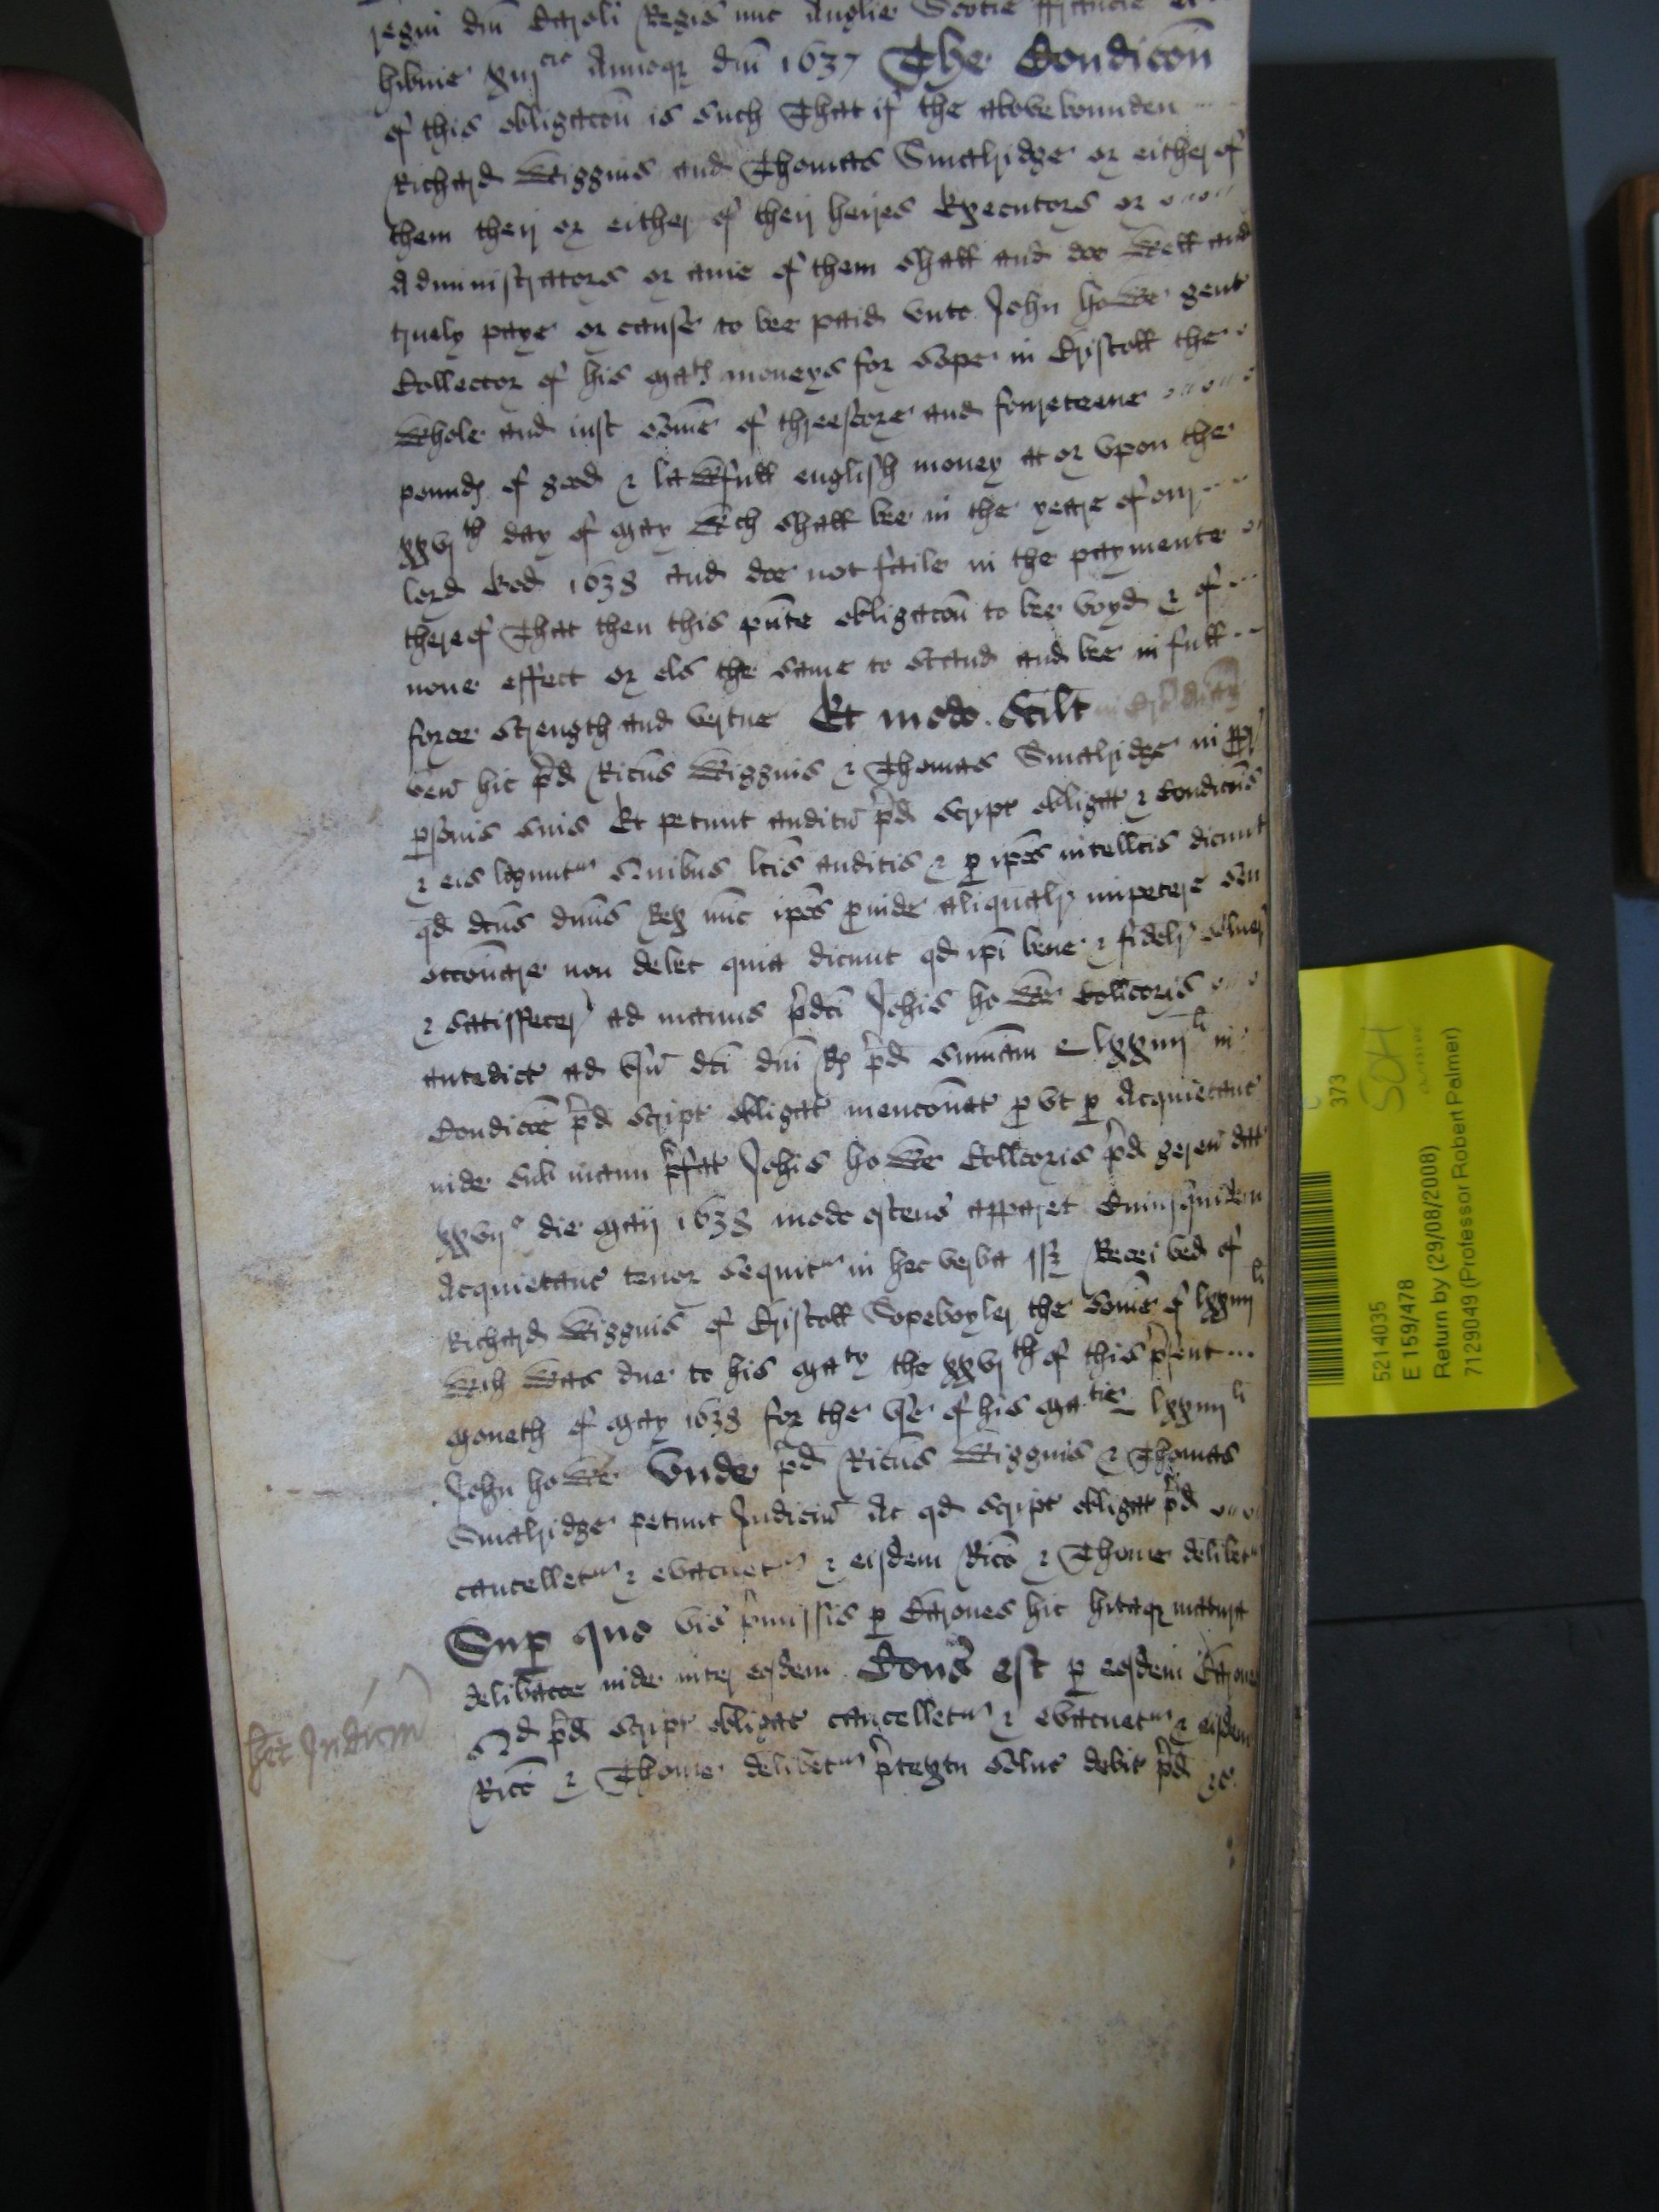 regni dni Caroli Regis nunc Anglie Scotie ffrancie et
hibnie xiij cio Annoqz dni 1637 The Condicon
of this obligacon is such That if the above bounden
Richard Wiggins and Thomas Smalridge or either of
them their or either of their heires Executors or
Administrators or anie of them shall and doo well and
truely paye or cause to bee paid vnto John howe gent
Collector of his Mats moneys for sope in Bristoll the
whole and iust some of threescore and foureteene
pounds of good & lawfull english money at or vpon the
xxvjth day of May wch shall bee in the yeare of our
lord God 1638 and doe not faile in the paymente
thereof That then this pnte obligacon to bee voyd & of
none effect or els the same to stand and bee in full
force strength and vertue Et modo scilt
ven hic pd Ricus Wiggins & Thomas Smalridge in ppr
psonis suis Et petunt auditu pd script obligat & Condicois
& eis legunt omibus lcis auditis & p ipos intellcis dicunt
qd dcus dnus Rex nunc ipos pinde aliqualr impetere seu
occonare non debet quia dicunt qd ipi bene & fidelr solver
& satisffecer ad manus pdci Johis howe Collcoris
antedict ad vsu dci dni R pd summam e lxxiiij li in
Condicoe pd script obligat menconat put p Acquietanc
inde sub manu pfat Johis howe Collcoris pd geren dat
xxvijo die Maij 1638 modo ostens apparet Cuiusquidem
Acquietanc tenor sequit in hec verba ssz Received of
Richard Wiggins of Bristoll Sopeboyler the some of lxxiiij li
wch was due to his Maty the xxvjth of this psent
Moneth of May 1638 for the vse of his Matie lxxiiij li
John howe Vnde pd Ricus Wiggins & Thomas
Smalridge petunt Judiciu Ac qd script obligat pd
cancellet & evacuet & eisdem Rico & Thome delibet
Sup quo vis pmissis p Barones hic hitaqz matura
delibacoe inde inter eosdem Cons est p eosdem Barones
Qd pd script obligat cancellet & evacuet & eisdem
Rico & Thome delibet ptextu solut debit pd &c
hic Judicm
373
SOH
5214035
E 159/478
Return by (29/08/2008)
7129049 (Professor Robert Palmer)